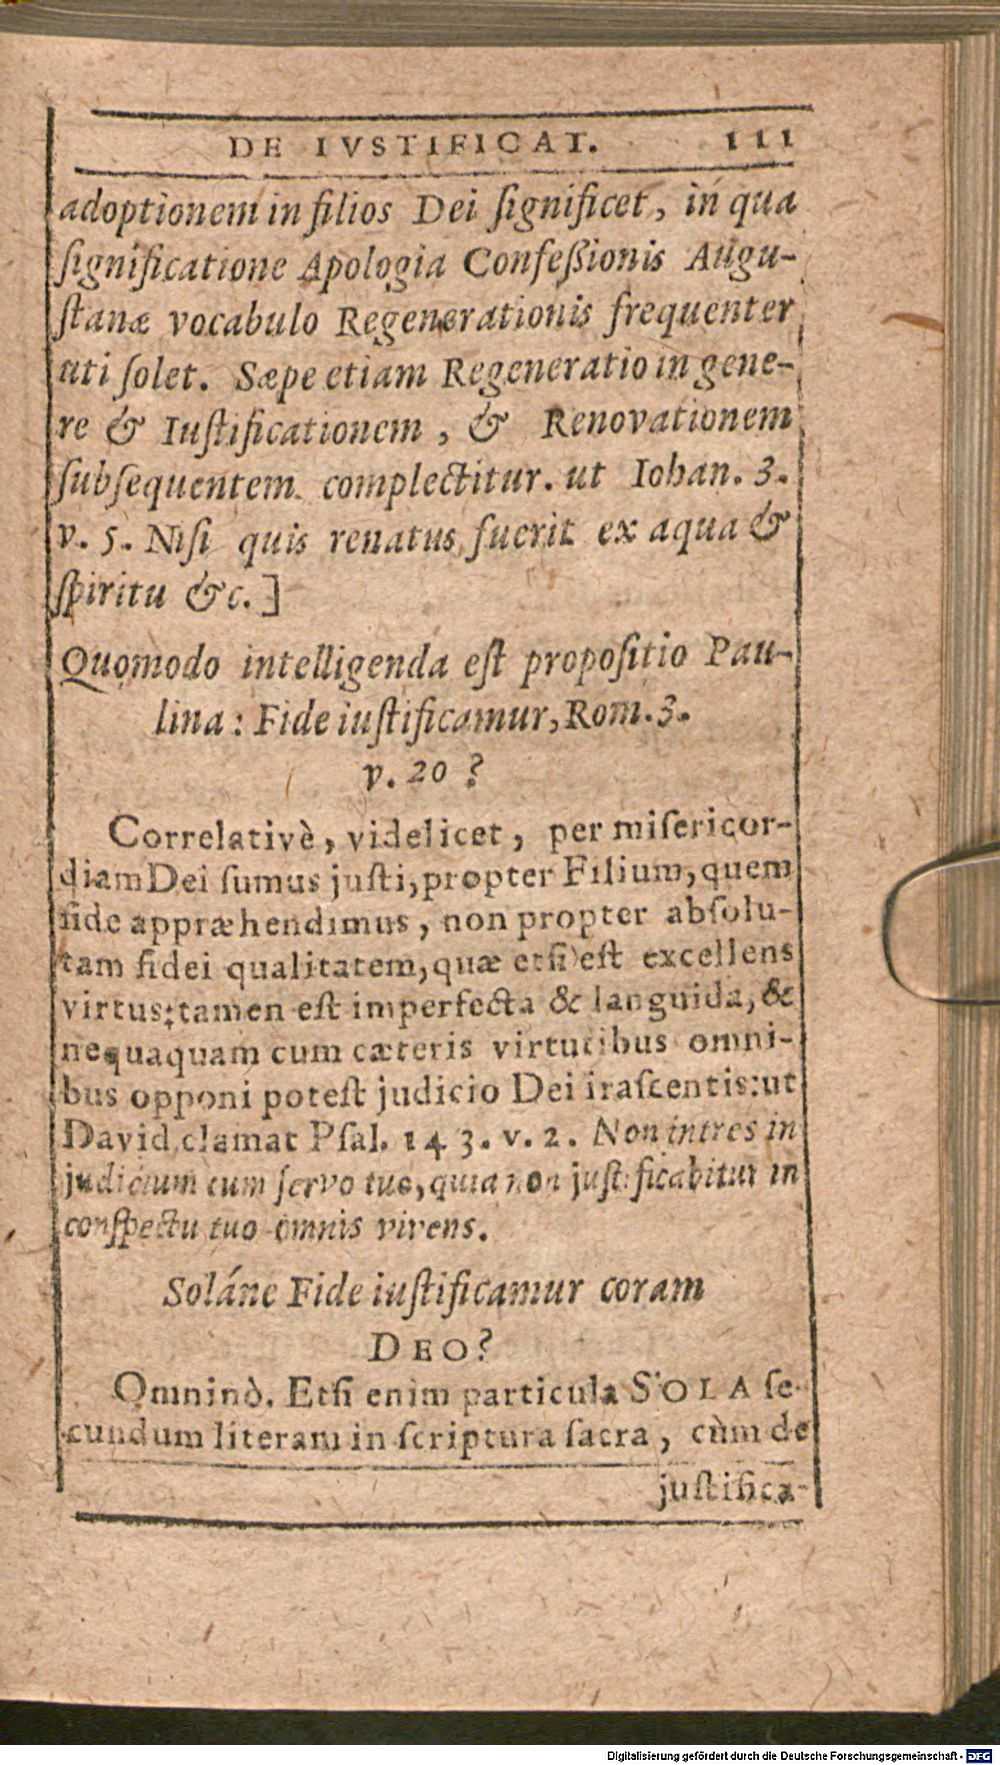 DE IVSTIFICAT. 111
adoptionem in filios Dei ſignificet, in qua
ſignificatione Apologia Confeßionis Augu-
ſtanæ vocabulo Regenerationis frequenter
uti ſolet. Sæpe etiam Regeneratio in gene-
re & Iuſtificationem, & Renovationem
ſubſequentem complectitur. ut Iohan. 3.
v. 5. Niſi quis renatus fuerit ex aqua &
ſpiritu &c.]
Quomodo intelligenda eſt propoſitio Pau-
lina: Fide iuſtificamur, Rom. 3.
v. 20?
Correlativè, videlicet, per miſericor-
diam Dei ſumus juſti, propter Filium, quem
fide appræhendimus, non propter abſolu-
tam fidei qualitatem, quæ etſi eſt excellens
virtus: tamen eſt imperfecta & languida, &
nequaquam cum cæteris virtutibus omni-
bus opponi poteſt judicio Dei iraſcentis: ut
David clamat Pſal. 143. v. 2. Non intres in
judicium cum ſervo tuo, quia non juſtificabitur in
conſpectu tuo omnis vivens.
Soláne Fide iuſtificamur coram
DEO?
Omninò. Etſi enim particula SOLA ſe-
cundum literam in ſcriptura ſacra, cùm de
juſtifica-
Digitalisierung gefördert durch die Deutsche Forschungsgemeinschaft - DFG